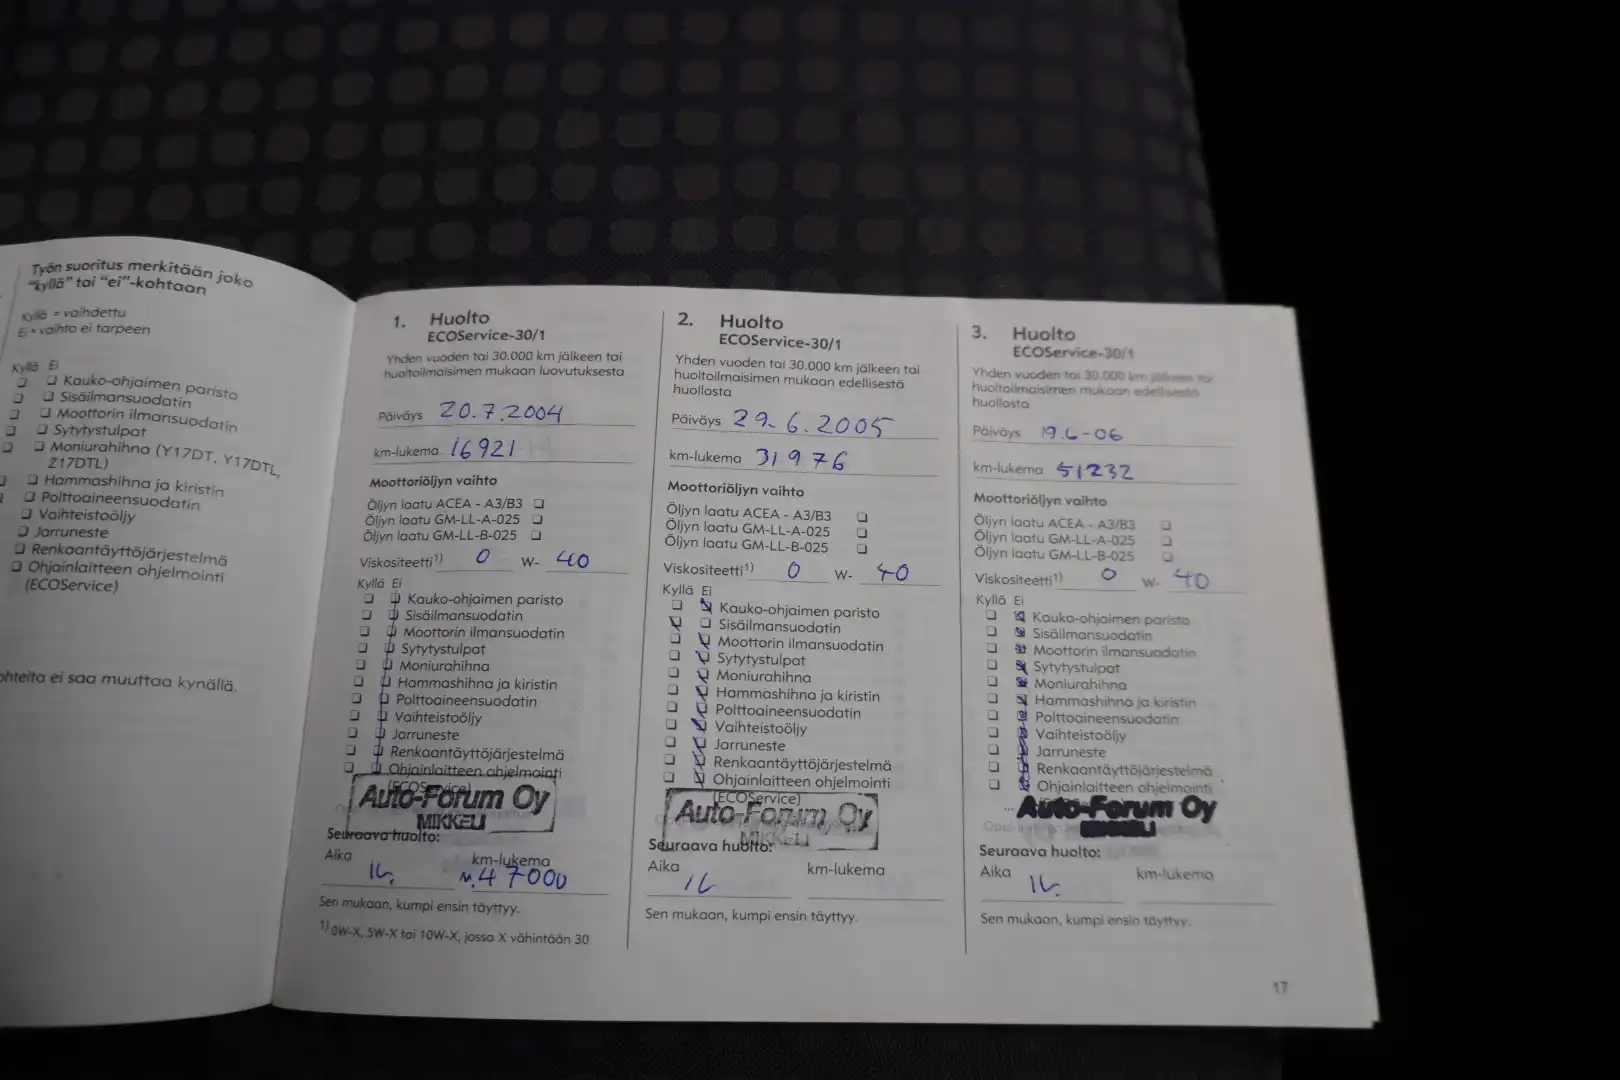 Työn suoritus merkitään joko
"kyllä" tai "ei"-kohtaan
Kyllä = vaihdettu
Ei = vaihto ei tarpeen
Kyllä Ei
Kauko-ohjaimen paristo
Sisäilmansuodatin
Moottorin ilmansuodatin
Sytytystulpat
Moniurahihna (Y17DT, Y17DTL,
Z17DTL)
Hammashihna ja kiristin
Polttoaineensuodatin
Vaihteistoöljy
Jarruneste
Renkaantäyttöjärjestelmä
Ohjainlaitteen ohjelmointi
(ECOService)
ohteita ei saa muuttaa kynällä.
1. Huolto
ECOService-30/1
Yhden vuoden tai 30.000 km jälkeen tai
huoltoilmaisimen mukaan luovutuksesta
Päiväys 20.7.2004
km-lukema 16921
Moottoriöljyn vaihto
Öljyn laatu ACEA - A3/B3
Öljyn laatu GM-LL-A-025
Öljyn laatu GM-LL-B-025
Viskositeetti1) 0 W- 40
Kyllä Ei
Kauko-ohjaimen paristo
Sisäilmansuodatin
Moottorin ilmansuodatin
Sytytystulpat
Moniurahihna
Hammashihna ja kiristin
Polttoaineensuodatin
Vaihteistoöljy
Jarruneste
Renkaantäyttöjärjestelmä
Ohjainlaitteen ohjelmointi
(ECOService)
Auto-Forum Oy
MIKKELI
Seuraava huolto:
Aika km-lukema
n.47000
Sen mukaan, kumpi ensin täyttyy.
1) 0W-X, 5W-X tai 10W-X, jossa X vähintään 30
2. Huolto
ECOService-30/1
Yhden vuoden tai 30.000 km jälkeen tai
huoltoilmaisimen mukaan edellisestä
huollosta
Päiväys 29.6.2005
km-lukema 31976
Moottoriöljyn vaihto
Öljyn laatu ACEA - A3/B3
Öljyn laatu GM-LL-A-025
Öljyn laatu GM-LL-B-025
Viskositeetti1) 0 W- 40
Kyllä Ei
Kauko-ohjaimen paristo
Sisäilmansuodatin
Moottorin ilmansuodatin
Sytytystulpat
Moniurahihna
Hammashihna ja kiristin
Polttoaineensuodatin
Vaihteistoöljy
Jarruneste
Renkaantäyttöjärjestelmä
Ohjainlaitteen ohjelmointi
(ECOService)
Auto-Forum Oy
MIKKELI
Seuraava huolto:
Aika km-lukema
Sen mukaan, kumpi ensin täyttyy.
3. Huolto
ECOService-30/1
Yhden vuoden tai 30.000 km jälkeen tai
huoltoilmaisimen mukaan edellisestä
huollosta
Päiväys 19.6-06
km-lukema 51232
Moottoriöljyn vaihto
Öljyn laatu ACEA - A3/B3
Öljyn laatu GM-LL-A-025
Öljyn laatu GM-LL-B-025
Viskositeetti1) 0 W- 40
Kyllä Ei
Kauko-ohjaimen paristo
Sisäilmansuodatin
Moottorin ilmansuodatin
Sytytystulpat
Moniurahihna
Hammashihna ja kiristin
Polttoaineensuodatin
Vaihteistoöljy
Jarruneste
Renkaantäyttöjärjestelmä
Ohjainlaitteen ohjelmointi
Auto-Forum Oy
MIKKELI
Seuraava huolto:
Aika km-lukema
Sen mukaan, kumpi ensin täyttyy.
17